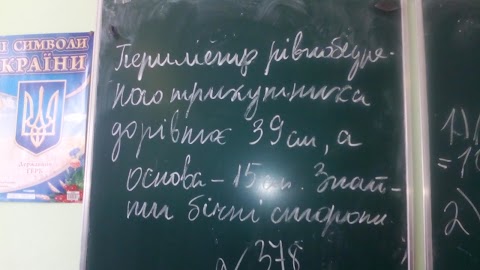 І СИМВОЛИ
КРАЇНИ
Периметр рівнобедре-
ного трикутника
дорівнює 39 см, а
основа – 15 см. Знай-
ти бічні сторони.
378
1)
=1
2)